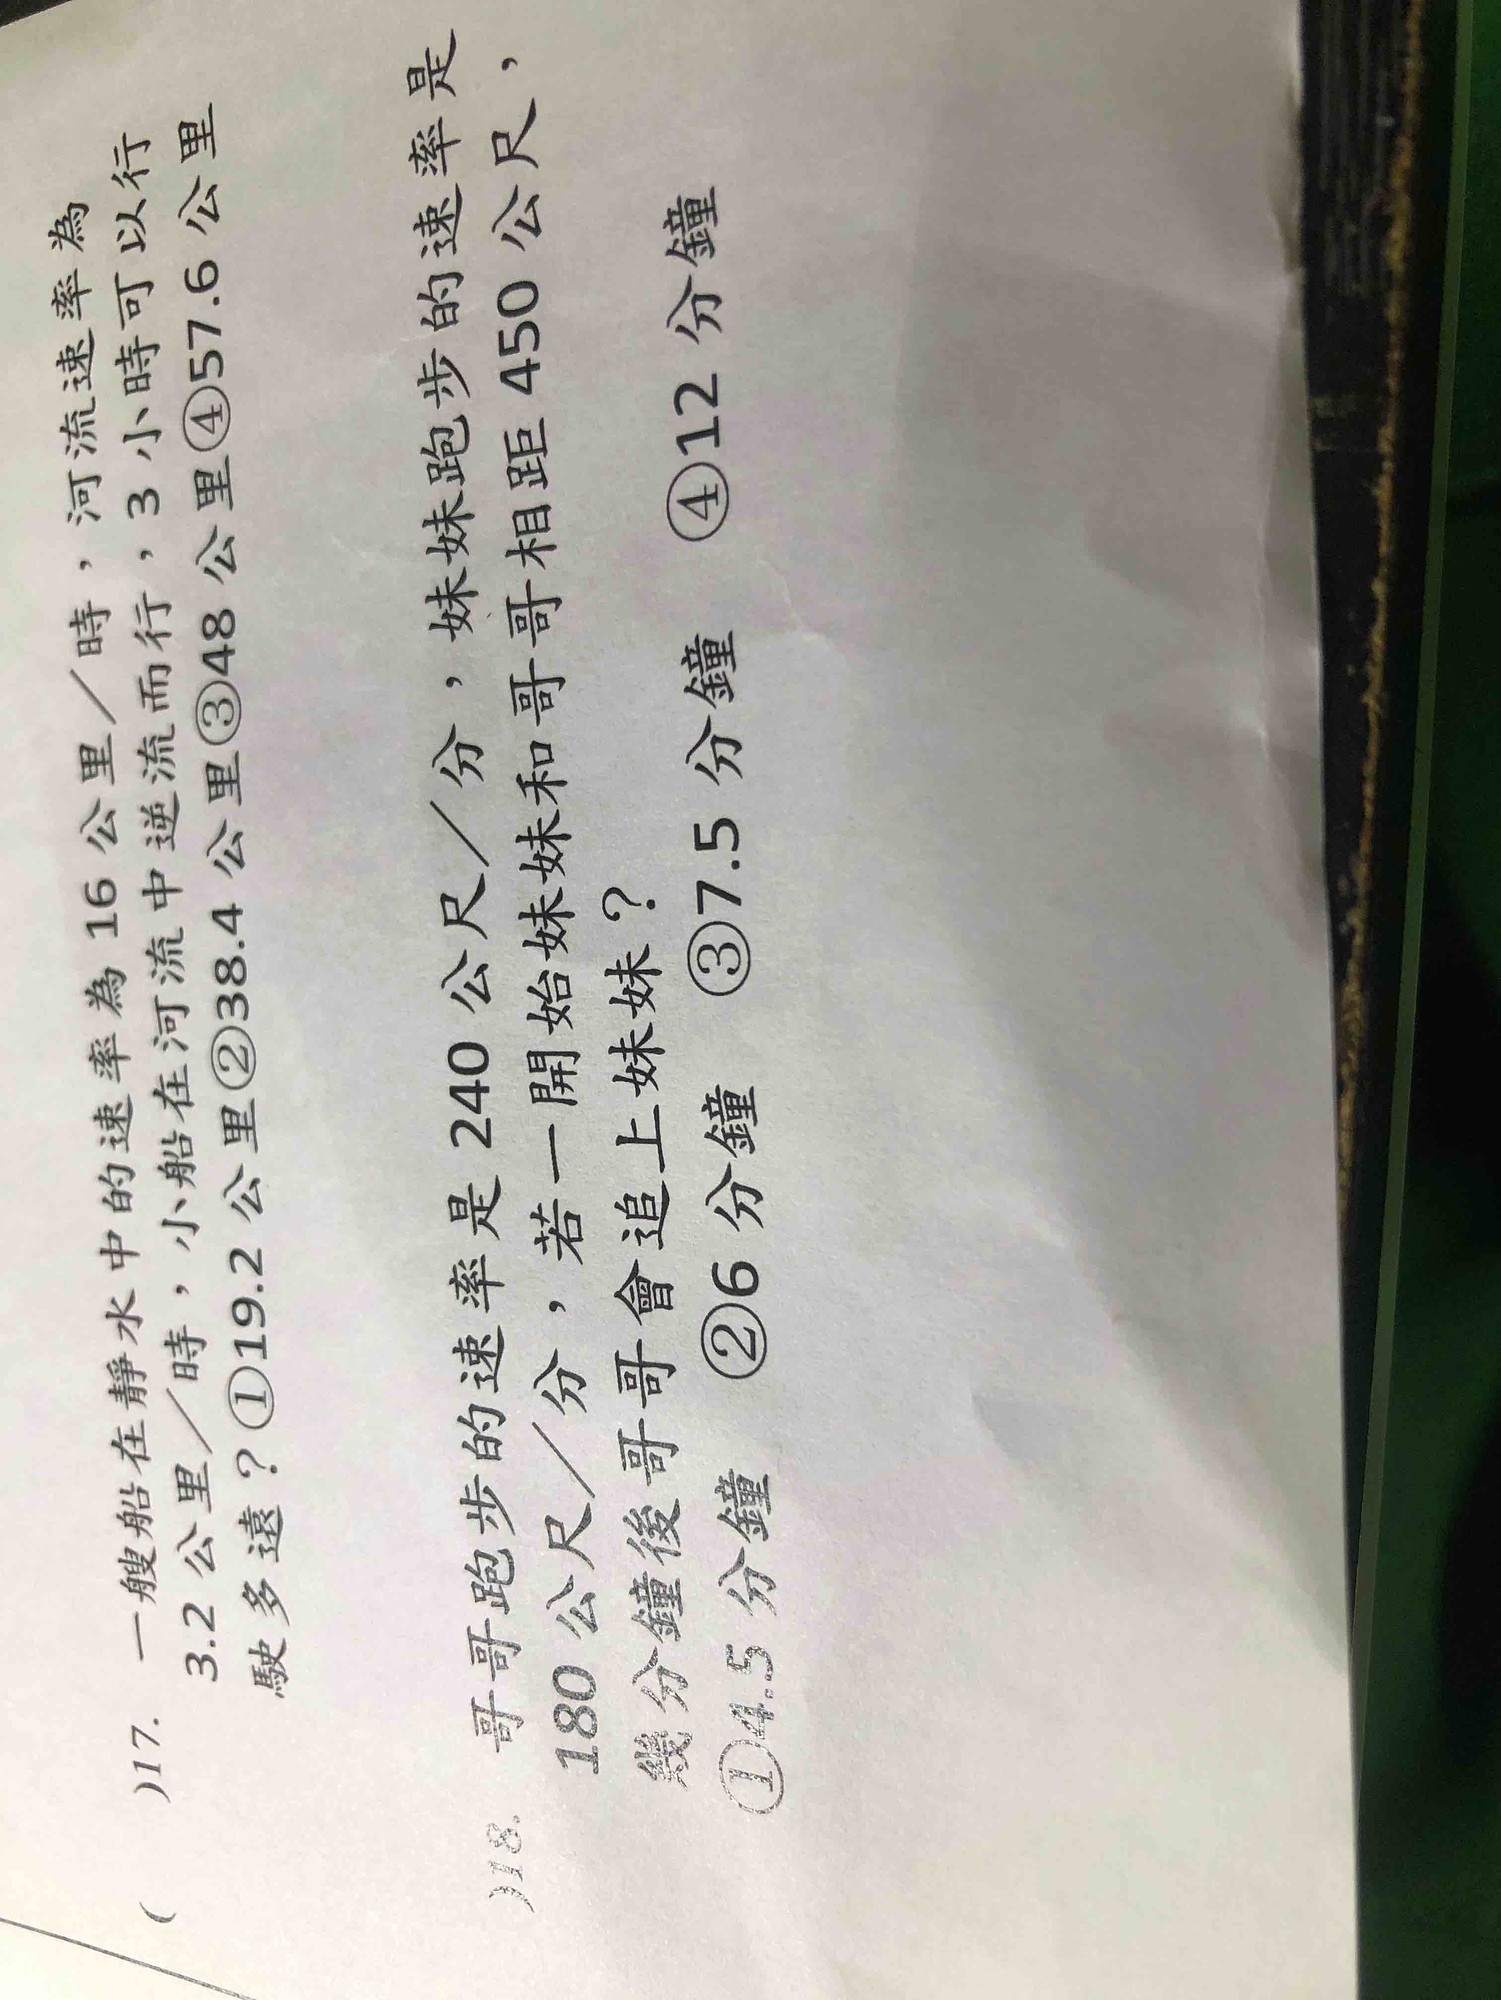 ( )17. 一艘船在靜水中的速率為 16 公里／時，河流速率為
3.2 公里／時，小船在河流中逆流而行，3 小時可以行
駛多遠？①19.2 公里②38.4 公里③48 公里④57.6 公里
)18. 哥哥跑步的速率是 240 公尺／分，妹妹跑步的速率是
180 公尺／分，若一開始妹妹和哥哥相距 450 公尺，
幾分鐘後哥哥會追上妹妹？
①4.5 分鐘 ②6 分鐘 ③7.5 分鐘 ④12 分鐘